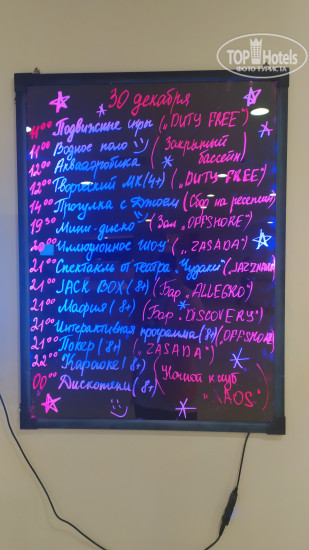 TOPHotels
ФОТО ТУРИСТА
30 декабря
11:00 Подвижные игры („DUTY FREE")
11:00 Водное поло (Закрытый бассейн)
12:00 Аквааэробика
12:00 Творческий МК (4+) („DUTY-FREE")
14:00 Прогулка с Джоем (Сбор на ресепшн)
19:30 Мини-диско (Зал „OFFSHORE")
20:00 Иллюзионное шоу („ZASADA")
21:00 Спектакль от театра „Чудаки" („JAZZMAN")
21:00 JACK BOX (8+) (Бар „ALLEGRO")
21:00 Мафия (8+) (Бар „DISCOVERY")
21:00 Интерактивная программа (8+) („OFFSHORE")
21:00 Покер (8+) („ZASADA")
22:00 Караоке! (8+)
00:00 Дискотека (8+) (Ночной клуб „ХАОS")